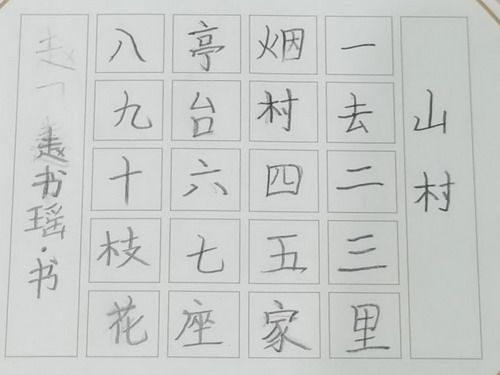 山村
一去二三里
烟村四五家
亭台六七座
八九十枝花
书瑶·书